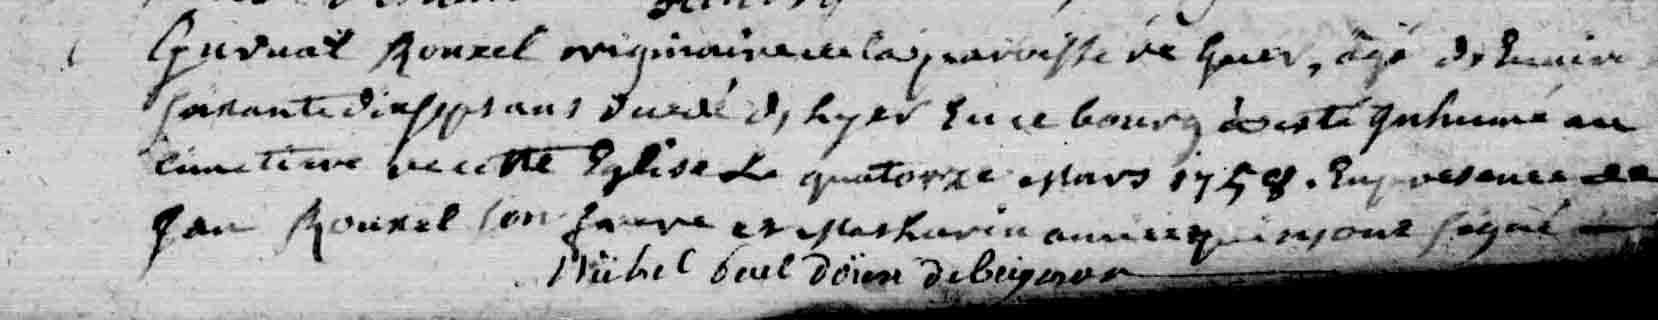 Gurval Rouxel originaire de la paroisse de Guer, agé d'Environ
soixante dix sept ans decedé d'hyer En ce bourg a esté Inhumé au
cimetiere de cette Eglise Le quatorze Mars 1758. En presence de
Jan Rouxel son frere et Mathurin qui ne sont signé
Michel doien de beignon